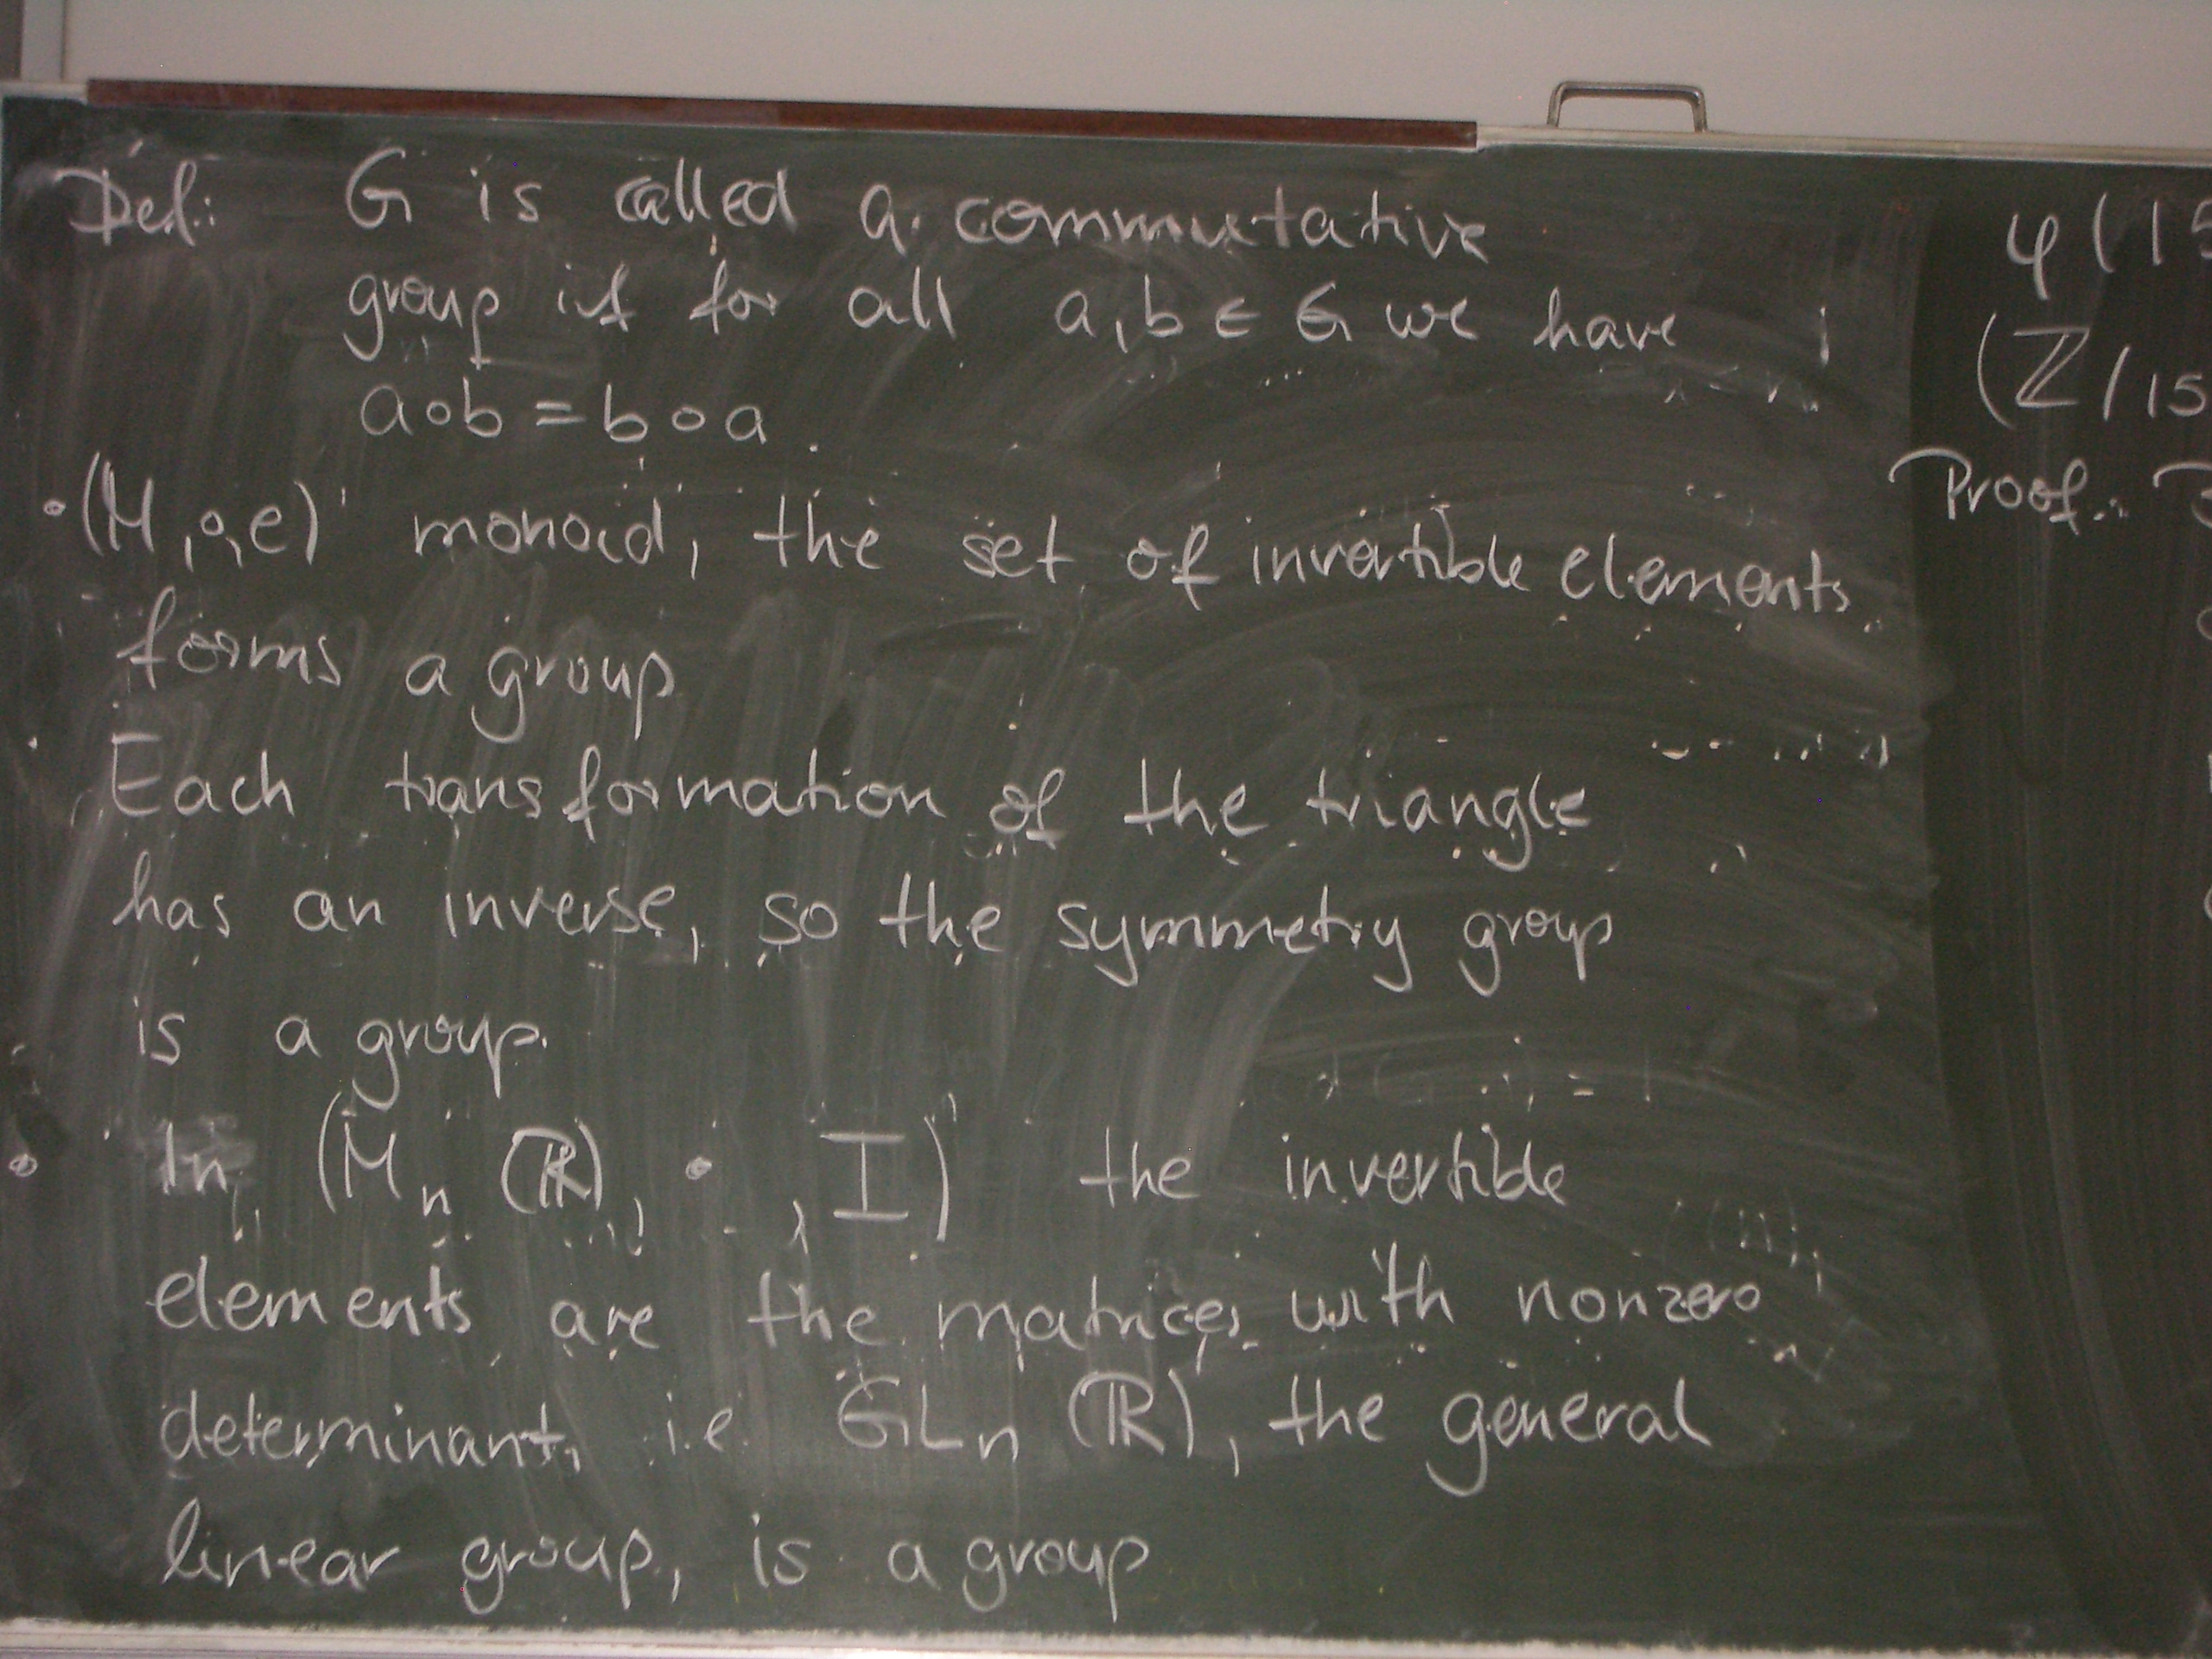 Def: G is called a commutative
group if for all a, b ∈ G we have
a∘b = b∘a.
• (M, ∘, e) monoid, the set of invertible elements
forms a group
Each transformation of the triangle
has an inverse, so the symmetry group
is a group.
• In (Mn (ℝ), •, I) the invertible
elements are the matrices with nonzero
determinant, i.e. GLn (ℝ), the general
linear group, is a group
φ(15
(ℤ/15
Proof: